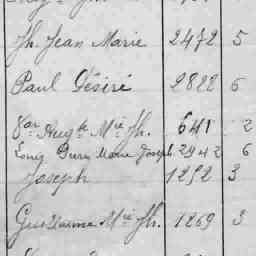 Jh. Jean Marie 2472 5
Paul Désiré 2828 6
Aug.te M.ie Jh. 641 2
Louis Marie Joseph 2942 6
Joseph 1252 3
Guillaume M.ie Jh. 1269 3